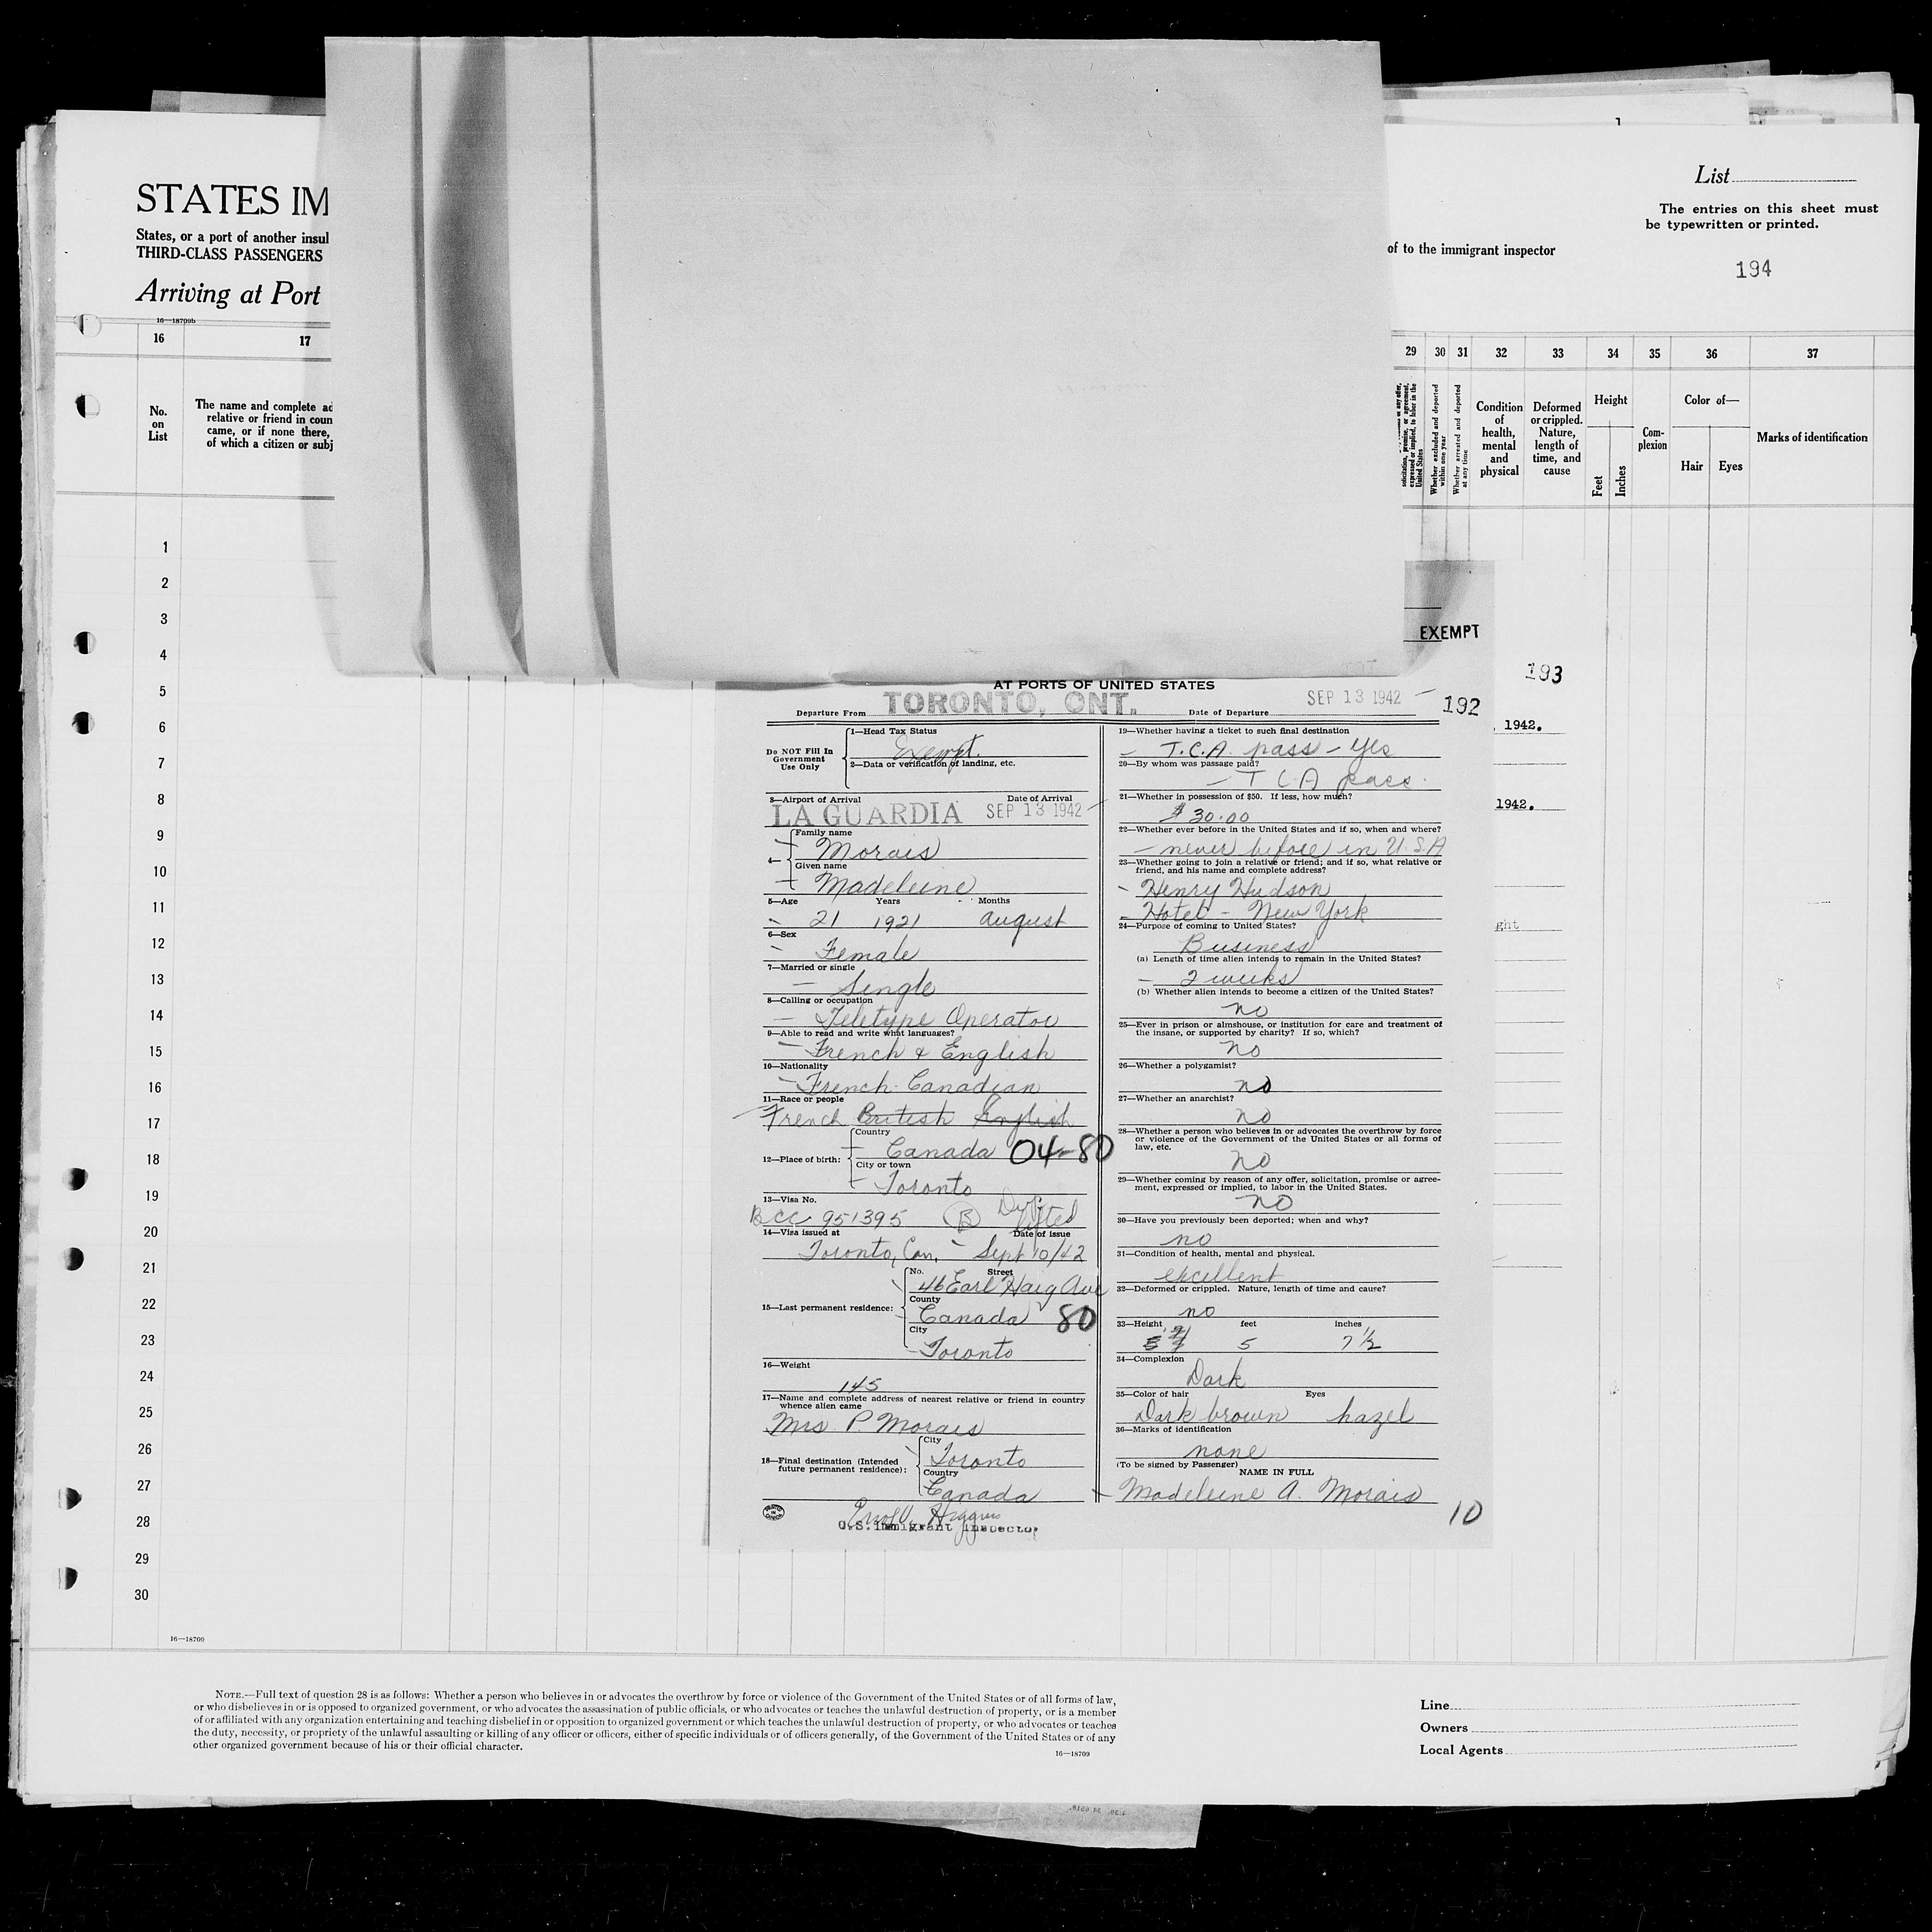 STATES IM
States, or a port of another insul
THIRD-CLASS PASSENGERS
Arriving at Port
16—18709b
List
The entries on this sheet must
be typewritten or printed.
of to the immigrant inspector
194
16
17
No.
on
List
The name and complete ad
relative or friend in coun
came, or if none there,
of which a citizen or subj
29 30 31 32 33 34 35 36 37
solicitation, promise, or agreement,
expressed or implied, to labor in the
United States
Whether excluded and deported
within one year
Whether arrested and deported
at any time
Condition
of
health,
mental
and
physical
Deformed
or crippled.
Nature,
length of
time, and
cause
Height
Feet
Inches
Com-
plexion
Color of—
Hair
Eyes
Marks of identification
1
2
3
4
5
6
7
8
9
10
11
12
13
14
15
16
17
18
19
20
21
22
23
24
25
26
27
28
29
30
16—18709
EXEMPT
193
, 1942.
1942.
ght
AT PORTS OF UNITED STATES
Departure From TORONTO, ONT. Date of Departure SEP 13 1942
192
Do NOT Fill In
Government
Use Only
1—Head Tax Status
Exempt.
2—Data or verification of landing, etc.
3—Airport of Arrival Date of Arrival
LA GUARDIA SEP 13 1942
4—
Family name
Morais
Given name
Madeleine
5—Age Years Months
21 1921 August
6—Sex
Female
7—Married or single
Single
8—Calling or occupation
Teletype Operator
9—Able to read and write what languages?
French & English
10—Nationality
French-Canadian
11—Race or people
French British English
12—Place of birth:
Country
Canada 04-80
City or town
Toronto
13—Visa No.
BCC 951395 (B) lifted
14—Visa issued at Date of issue
Toronto, Can, - Sept 10/42
15—Last permanent residence:
No. Street
46 Earl Haig Ave
County
Canada 80
City
Toronto
16—Weight
145
17—Name and complete address of nearest relative or friend in country
whence alien came
Mrs P. Morais
18—Final destination (Intended
future permanent residence):
City
Toronto
Country
Canada
Higgins
U.S. Immigrant Inspector
19—Whether having a ticket to such final destination
- T.C.A. pass - yes
20—By whom was passage paid?
- T C A pass.
21—Whether in possession of $50. If less, how much?
$30.00
22—Whether ever before in the United States and if so, when and where?
- never before in U.S.A
23—Whether going to join a relative or friend; and if so, what relative or
friend, and his name and complete address?
- Henry Hudson
- Hotel - New York
24—Purpose of coming to United States?
Business
(a) Length of time alien intends to remain in the United States?
- 2 weeks
(b) Whether alien intends to become a citizen of the United States?
no
25—Ever in prison or almshouse, or institution for care and treatment of
the insane, or supported by charity? If so, which?
no
26—Whether a polygamist?
no
27—Whether an anarchist?
no
28—Whether a person who believes in or advocates the overthrow by force
or violence of the Government of the United States or all forms of
law, etc.
no
29—Whether coming by reason of any offer, solicitation, promise or agree-
ment, expressed or implied, to labor in the United States.
no
30—Have you previously been deported; when and why?
no
31—Condition of health, mental and physical.
excellent
32—Deformed or crippled. Nature, length of time and cause?
no
33—Height feet inches
5 7 1/2
34—Complexion
Dark
35—Color of hair Eyes
Dark brown hazel
36—Marks of identification
none
(To be signed by Passenger)
NAME IN FULL
- Madeleine A. Morais
10
NOTE.—Full text of question 28 is as follows: Whether a person who believes in or advocates the overthrow by force or violence of the Government of the United States or of all forms of law,
or who disbelieves in or is opposed to organized government, or who advocates the assassination of public officials, or who advocates or teaches the unlawful destruction of property, or is a member
of or affiliated with any organization entertaining and teaching disbelief in or opposition to organized government or which teaches the unlawful destruction of property, or who advocates or teaches
the duty, necessity, or propriety of the unlawful assaulting or killing of any officer or officers, either of specific individuals or of officers generally, of the Government of the United States or of any
other organized government because of his or their official character.
16—18709
Line
Owners
Local Agents